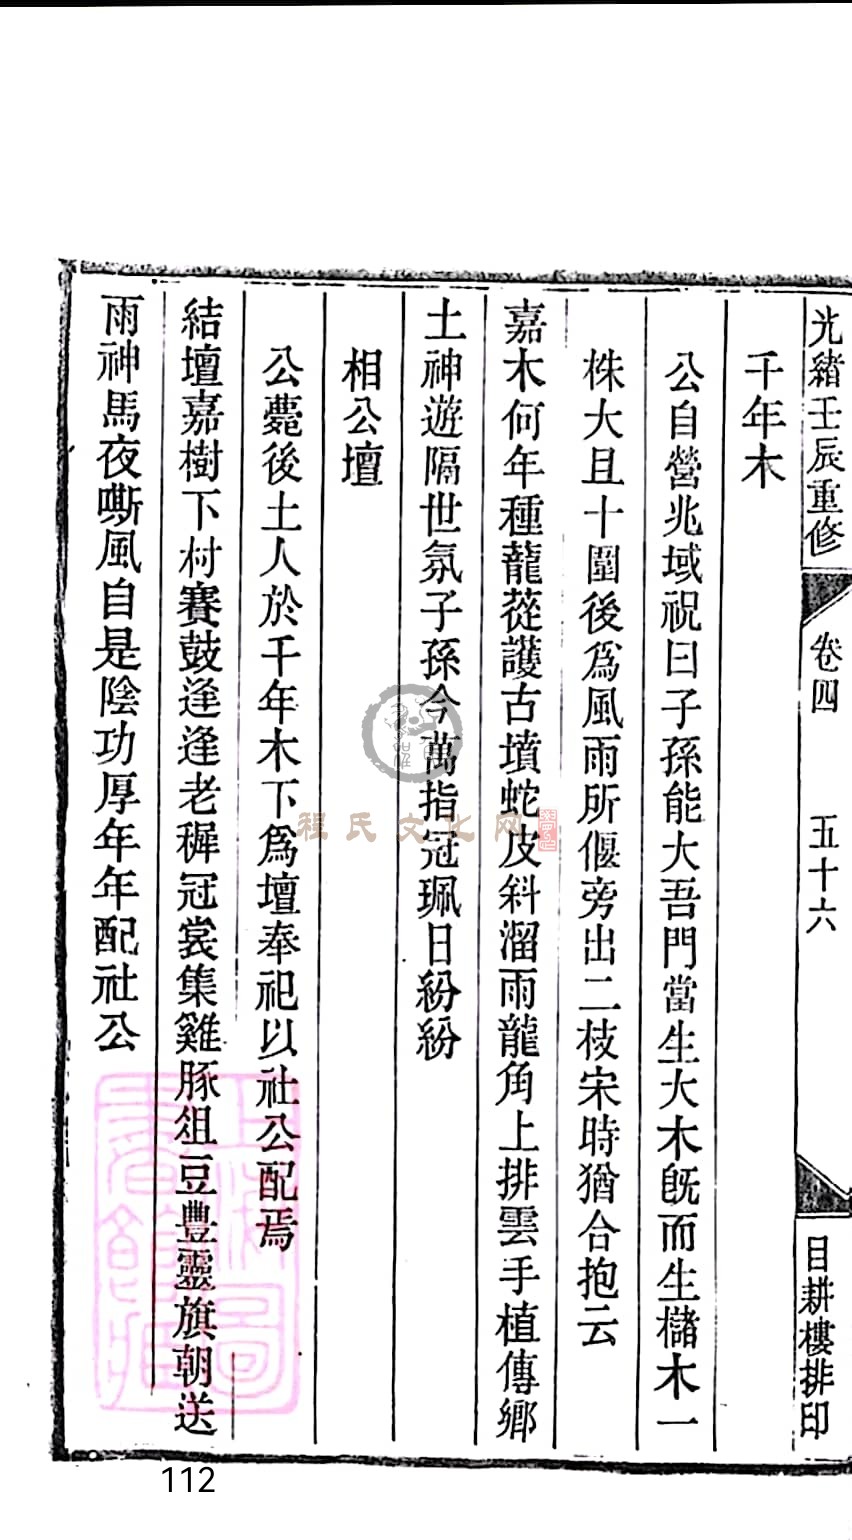 光緒壬辰重修
卷四
五十六
目耕樓排印
千年木
公自營兆域祝曰子孫能大吾門當生大木旣而生櫧木一
株大且十圍後爲風雨所偃旁出二枝宋時猶合抱云
嘉木何年種蘢蓯護古墳蛇皮斜溜雨龍角上排雲手植傳鄉
土神遊隔世氛子孫今萬指冠珮日紛紛
相公壇
公薨後土人於千年木下爲壇奉祀以社公配焉
結壇嘉樹下村賽鼓逢逢老穉冠裳集雞豚俎豆豐靈旗朝送
雨神馬夜嘶風自是陰功厚年年配社公
程氏文化网
112